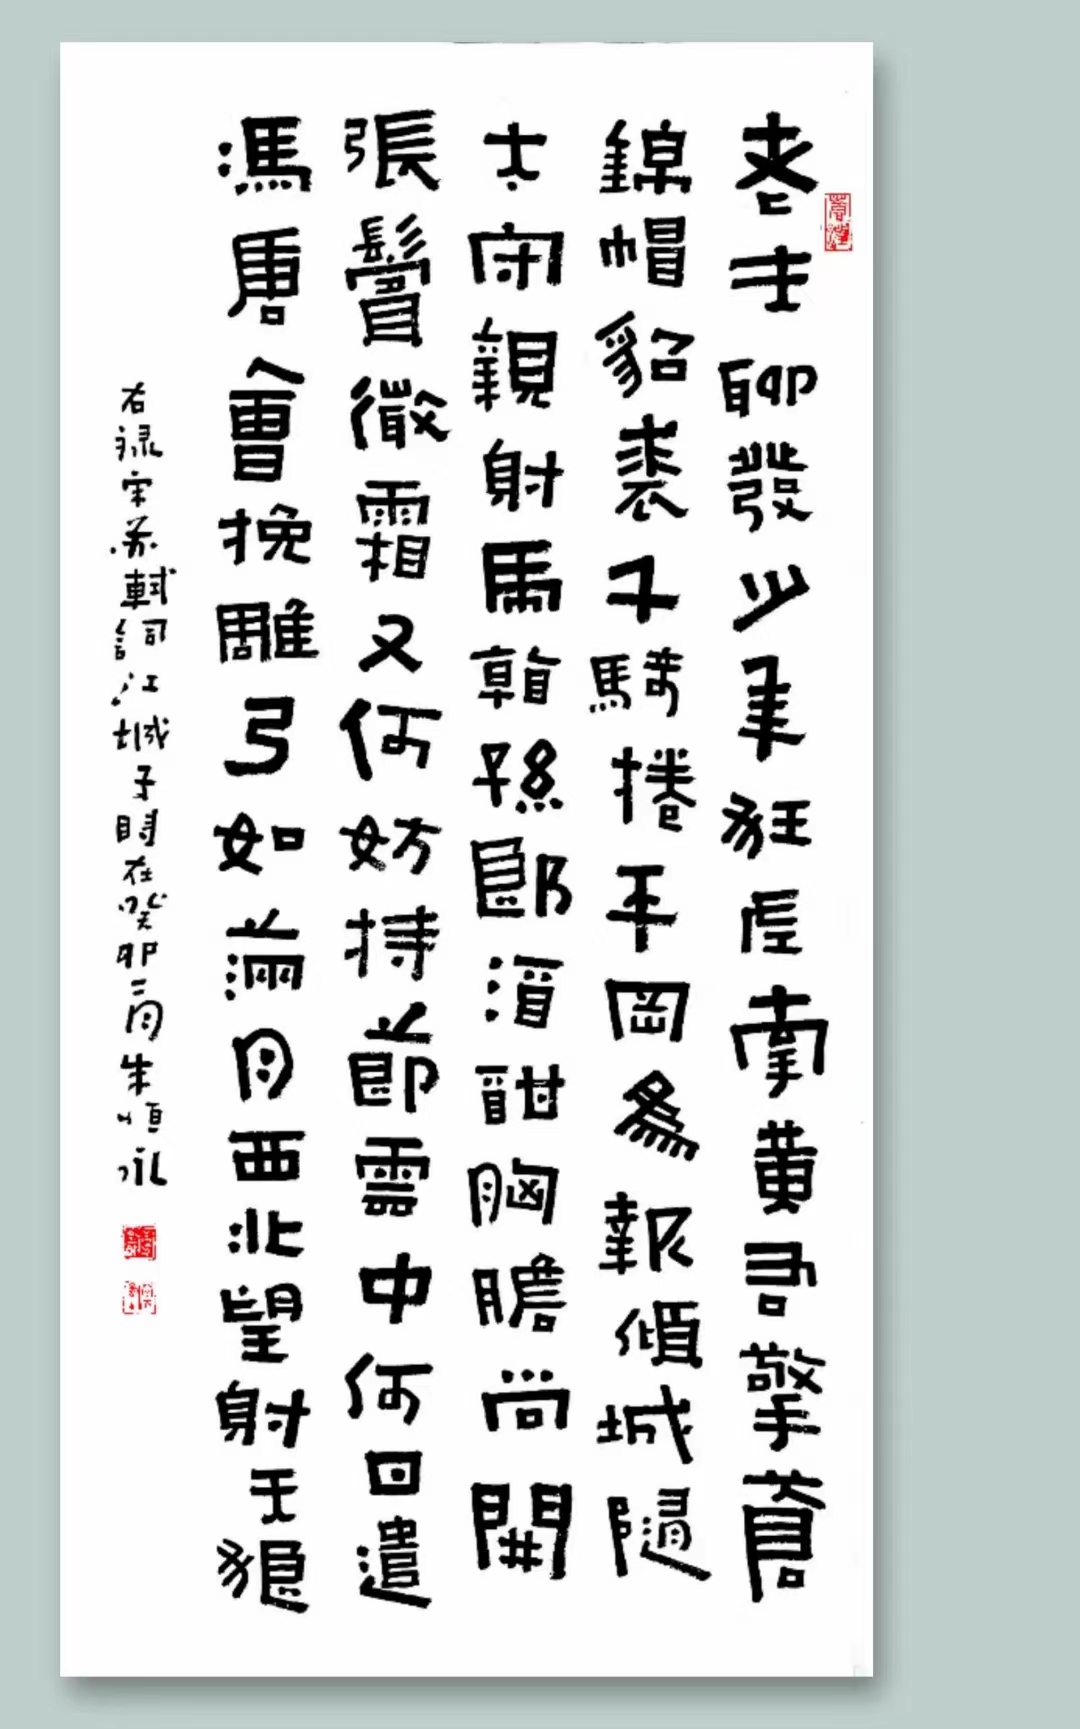 老夫聊發少年狂左牽黃右擎蒼
錦帽貂裘千騎捲平岡為報傾城隨
太守親射虎看孫郎酒酣胸膽尚開
張鬢微霜又何妨持節雲中何日遣
馮唐會挽雕弓如滿月西北望射天狼
右录宋苏軾詞江城子時在癸卯二月朱恒永